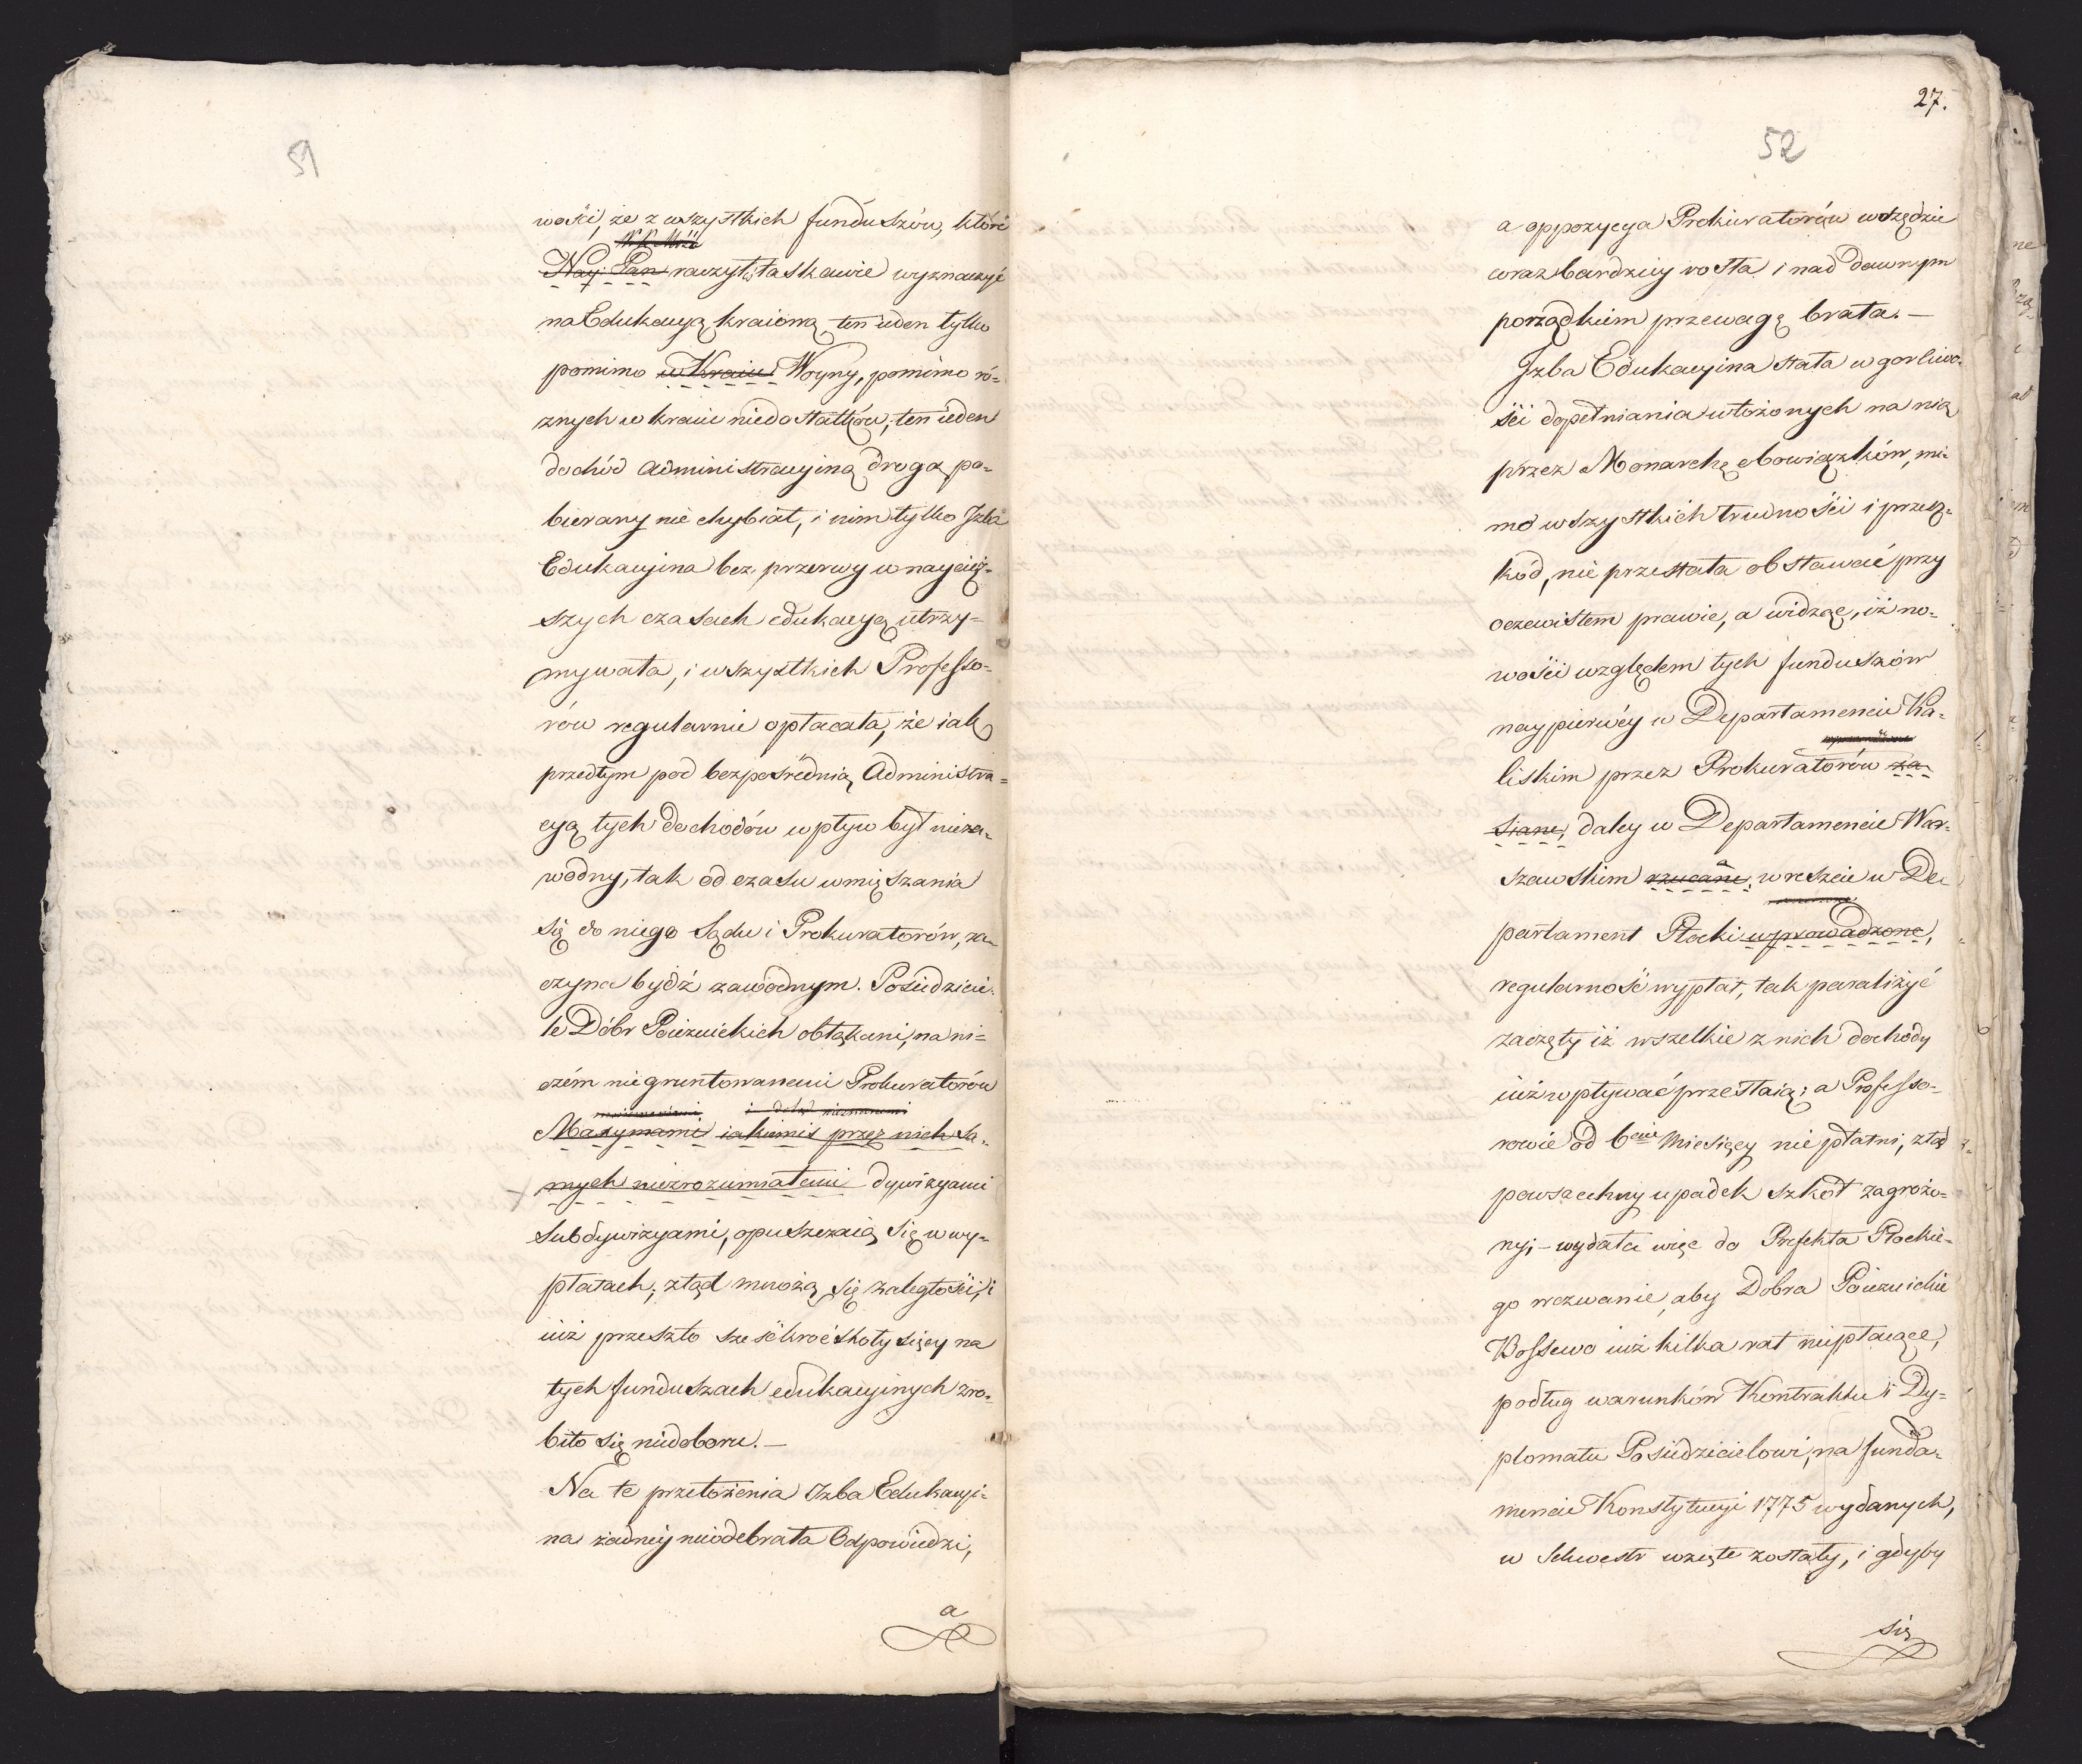 51
wości, że z wszystkich funduszów, które
Nay: Pan raczył łaskawie wyznaczyć
na Edukacyą kraiową, ten ieden tylko
pomimo w Kraiu Woyny, pomimo ró-
znych w kraiu niedostatków, ten ieden
dochód administracyiną drogą po-
bierany nie chybiał, i nim tylko Izba
Edukacyina bez przerwy w naycięż-
szych czasach edukacyą utrzy-
mywała, i wszystkich Professo-
rów regularnie opłacała, że iak
przedtym pod bezpośrednią Administra-
cyą tych dochodów wpływ był nieza-
wodny, tak od czasu wmięszania
się do niego Sądu i Prokuratorów, za-
czyna bydź zawodnym. Posiedzicie-
le Dóbr Poiezuickich obłąkani, na ni-
czém niegruntowanemi Prokuratorów
i dotąd nieznanemi
Maxymami iakiemiś przez nich sa-
mych niezrozumiałemi dywizyami
Subdywizyami, opuszczaią się w wy-
płatach, ztąd mnożą się zaległości, i
iuż przeszło sześćkroć stotysięcy na
tych funduszach edukacyinych zro-
biło się niedoboru. —
Na te przełożenia Izba Edukacyi-
na żadney nieodebrała Odpowiedzi,
a
27.
52
a oppozycya Prokuratorów wszędzie
coraz bardziey rosła i nad dawnym
porządkiem przewagę brała. —
Izba Edukacyina stała w gorliwo-
ści dopełniania włożonych na nią
przez Monarchę obowiązków, mi-
mo wszystkich trudności i przesz-
kód, nie przestała obstawać przy
oczewistem prawie, a widząc, iż no-
wości względem tych funduszów
naypierwéy w Departamencie Ka-
liskim przez Prokuratorów za-
siane, daley w Departamencie War-
szawskim rzucane, wreszcie w De-
partament Płocki wprowadzone,
regularność wypłat, tak paraliżyć
zaczęły iż wszelkie z nich dochody
iuż wpływać przestaią; a Professo-
rowie od 6ciu Miesięcy nie płatni, ztąd
powszechny upadek szkół zagrożo-
ny; – wydała więc do Prefekta Płockie-
go wezwanie, aby Dobra Poiezuickie
Bossewo iuż kilka rat niepłacące,
podług warunków Kontraktu i Dy-
plomatu Posiedzicielowi, na funda-
mencie Konstytucyi 1775 wydanych,
w Sekwestr wzięte zostały, i gdyby
się